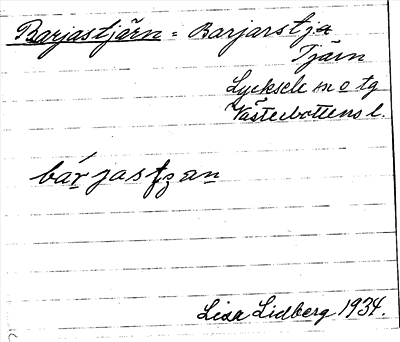 Barjastjärn = Barjarstja
Tjärn
Lycksele s o tg
Västerbottens l.
bárjastzan
Lisa Lidberg 1934.